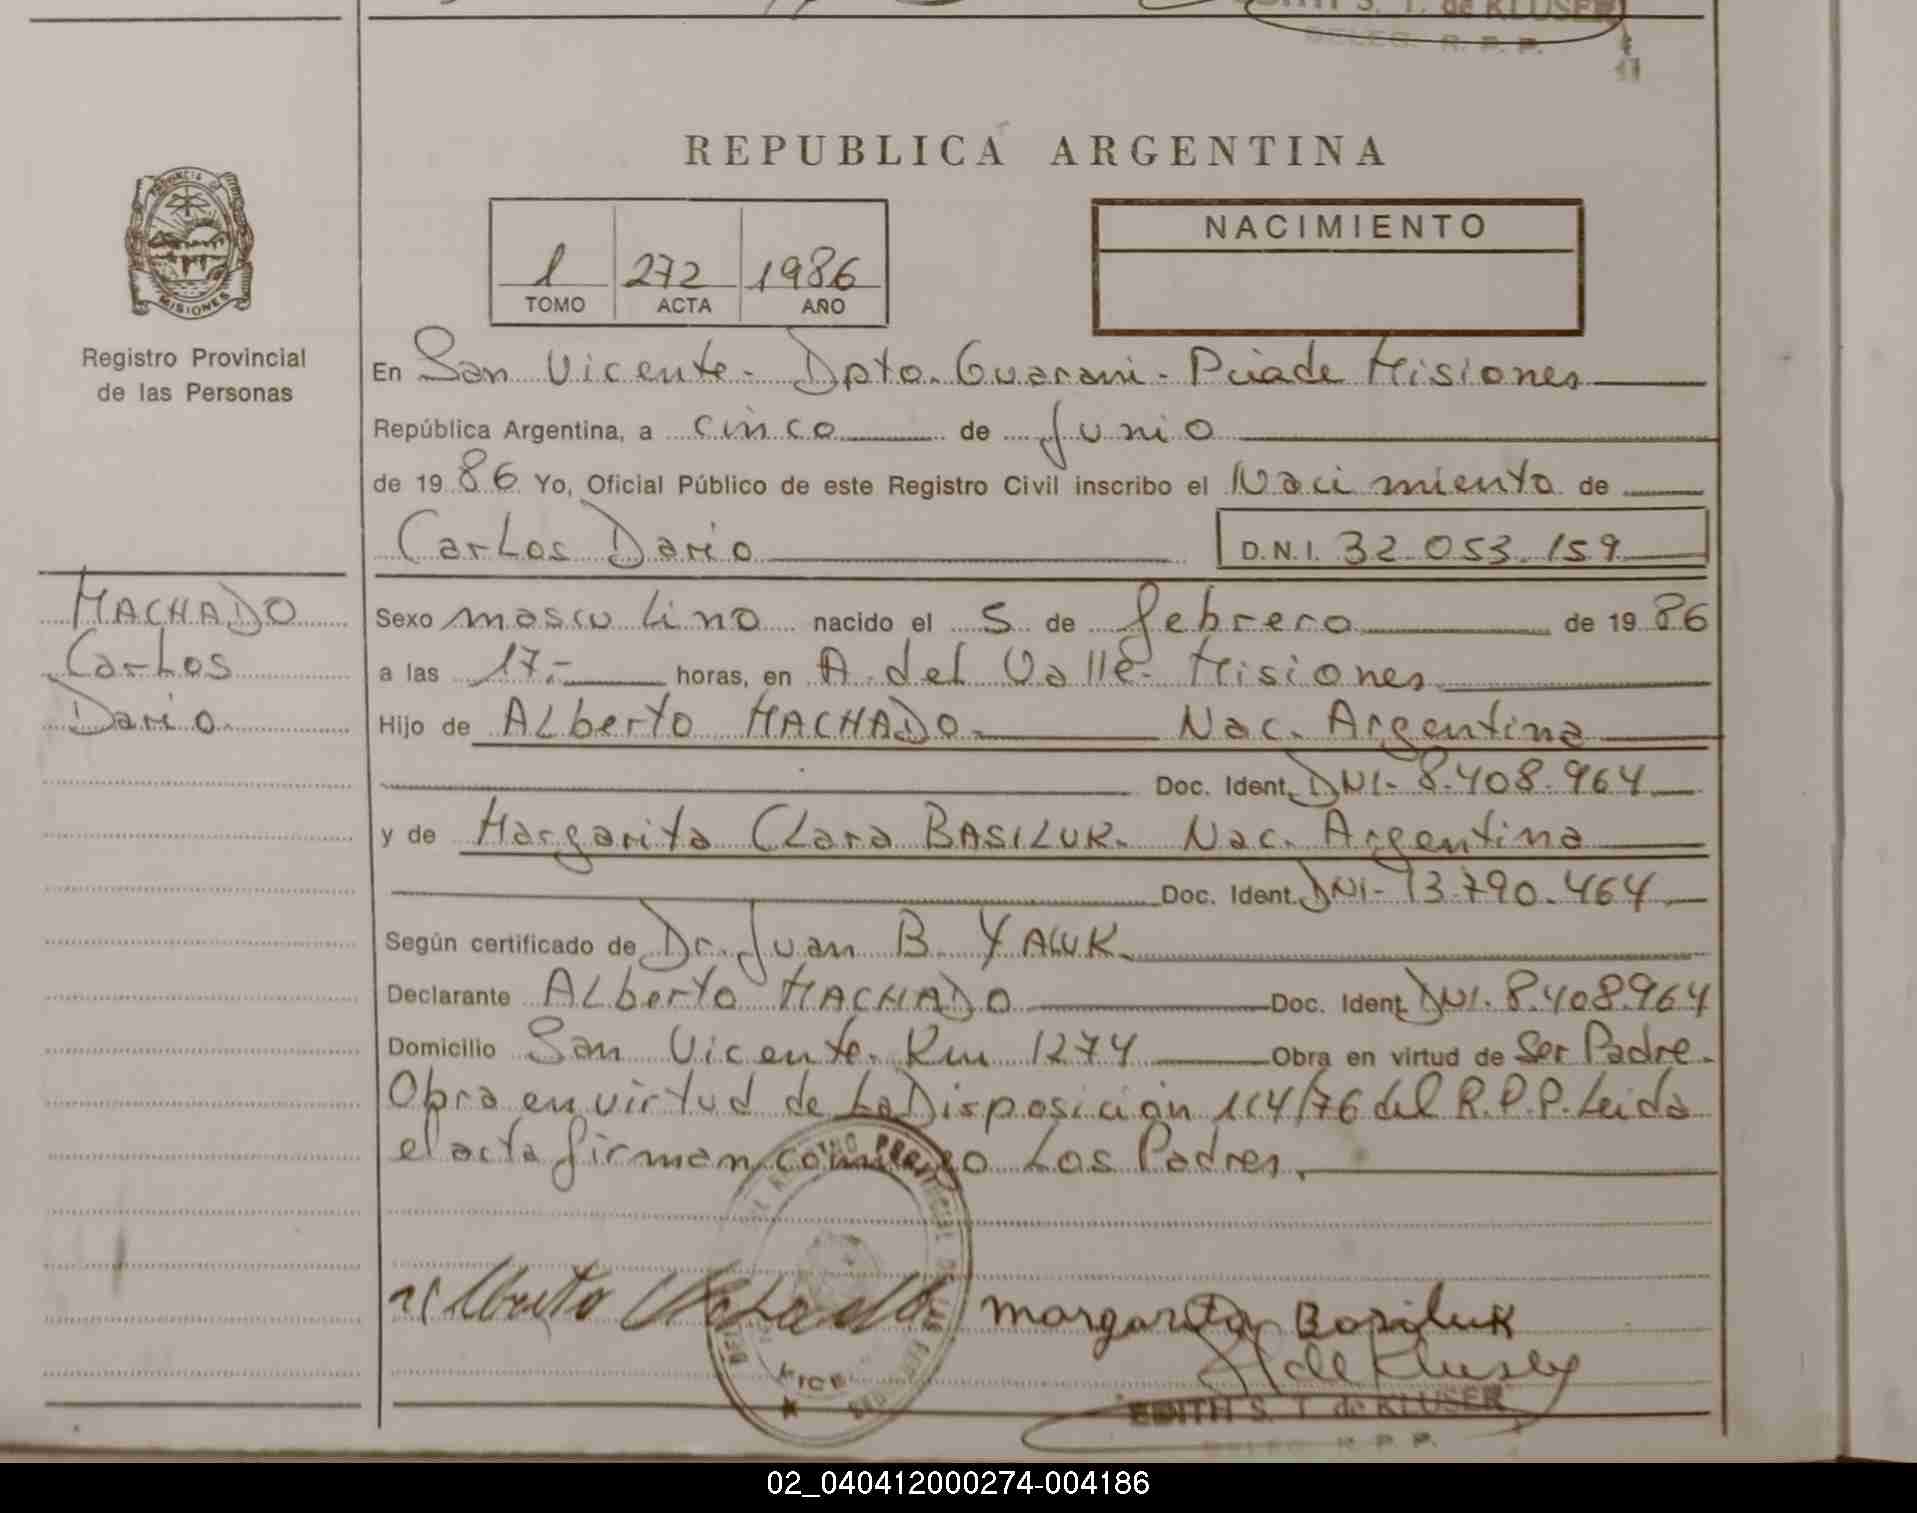 DITH S. T. de KLUSER
DELEG. R. P. P.
REPUBLICA ARGENTINA
PROVINCIA DE
MISIONES
Registro Provincial
de las Personas
1 272 1986
TOMO ACTA AÑO
NACIMIENTO
En San Vicente - Dpto. Guarani - Pciade Misiones
República Argentina, a cinco de Junio
de 19 86 Yo, Oficial Público de este Registro Civil inscribo el Nacimiento de
Carlos Dario D.N.I. 32.053.159
MACHADO
Carlos
Dario
Sexo masculino nacido el 5 de febrero de 19 86
a las 17.- horas, en A. del Valle - Misiones
Hijo de Alberto MACHADO. Nac. Argentina
Doc. Ident. DNI- 8.408.964
y de Margarita Clara BASILUK. Nac. Argentina
Doc. Ident. DNI- 13.790.464
Según certificado de Dr. Juan B. YALUK.
Declarante Alberto MACHADO Doc. Ident. DNI. 8.408.964
Domicilio San Vicente. Km 1274 Obra en virtud de Ser Padre.
Obra en virtud de La Disposición 114/76 del R.P.P. Leida
el acta firman conmigo Los Padres.
Alberto Machado Margarita Basiluk
de Kluser
EDITH S. T. de KLUSER
DELEG. R. P. P.
02_040412000274-004186